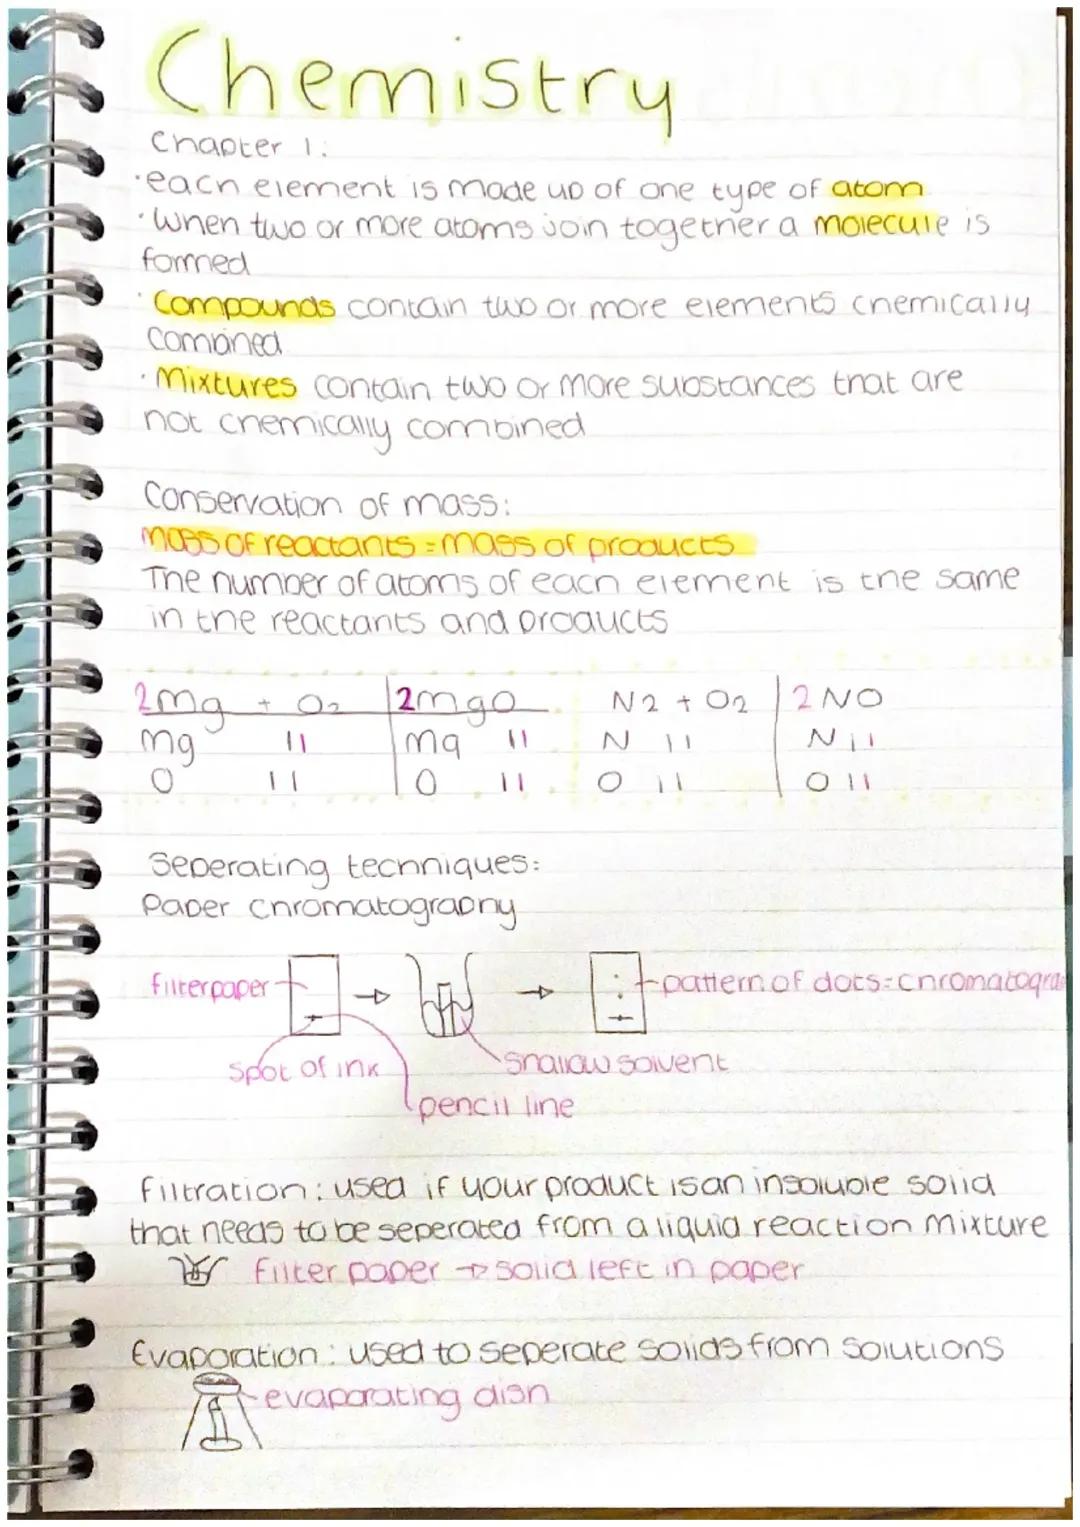 Chemistry
Chapter 1:
·each element is made up of one type of atom
·When two or more atoms join together a molecule is
formed
·Compounds contain two or more elements chemically
Combined
·Mixtures contain two or more substances that are
not chemically combined
Conservation of mass:
mass of reactants = mass of products
The number of atoms of each element is the same
in the reactants and products
2Mg + O2 | 2MgO N2 + O2 | 2NO
Mg 11 | Mg 11 N 11 | N 11
O 11 | O 11 O 11 | O 11
Seperating techniques:
Paper chromatography
filter paper pattern of dots = chromatogra
spot of ink shallow solvent
pencil line
filtration: used if your product is an insoluble solid
that needs to be seperated from a liquid reaction mixture
filter paper → solid left in paper
Evaporation: used to seperate solids from solutions
evaporating dish